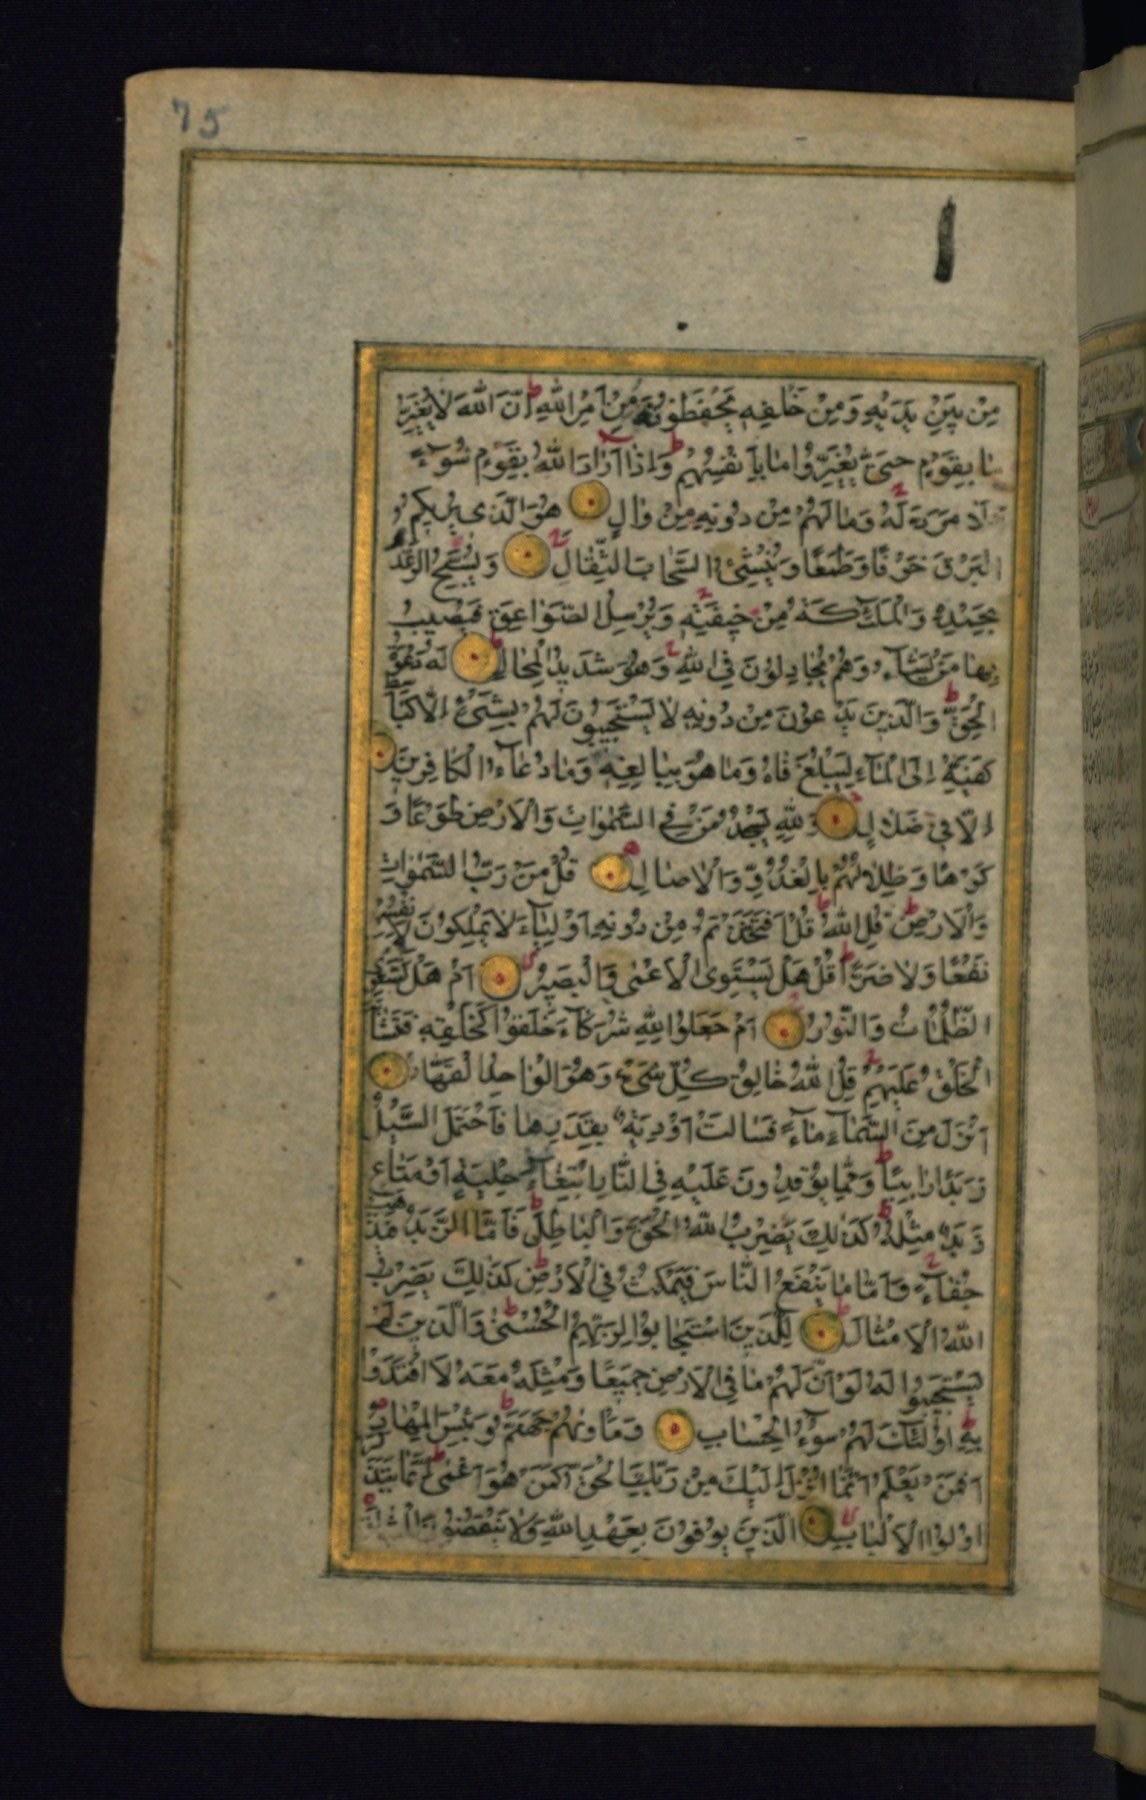 75
ا
مِنْ بَيْنِ يَدَيْهِ وَمِنْ خَلْفِهِ يَحْفَظُونَهُ مِنْ اَمْرِ اللّٰهِ ط اِنَّ اللّٰهَ لَا يُغَيِّرُ
مَا بِقَوْمٍ حَتّٰى يُغَيِّرُوا مَا بِاَنْفُسِهِمْ ط وَاِذَا اَرَادَ اللّٰهُ بِقَوْمٍ سُوٓءً
فَلَا مَرَدَّ لَهُ وَمَا لَهُمْ مِنْ دُونِهِ مِنْ وَالٍ هُوَ الَّذِى يُرِيكُمُ
الْبَرْقَ خَوْفًا وَطَمَعًا وَيُنْشِئُ السَّحَابَ الثِّقَالَ وَيُسَبِّحُ الرَّعْدُ
بِحَمْدِهِ وَالْمَلٰٓئِكَةُ مِنْ خِيفَتِهِ وَيُرْسِلُ الصَّوَاعِقَ فَيُصِيبُ
بِهَا مَنْ يَشَآءُ وَهُمْ يُجَادِلُونَ فِى اللّٰهِ وَهُوَ شَدِيدُ الْمِحَالِ لَهُ دَعْوَةُ
الْحَقِّ ط وَالَّذِينَ يَدْعُونَ مِنْ دُونِهِ لَا يَسْتَجِيبُونَ لَهُمْ بِشَىْءٍ اِلَّا كَبَاسِطِ
كَفَّيْهِ اِلَى الْمَآءِ لِيَبْلُغَ فَاهُ وَمَا هُوَ بِبَالِغِهِ وَمَا دُعَآءُ الْكَافِرِينَ
اِلَّا فِى ضَلَالٍ وَلِلّٰهِ يَسْجُدُ مَنْ فِى السَّمٰوَاتِ وَالْاَرْضِ طَوْعًا وَ
كَرْهًا وَظِلَالُهُمْ بِالْغُدُوِّ وَالْاٰصَالِ قُلْ مَنْ رَبُّ السَّمٰوَاتِ
وَالْاَرْضِ ط قُلِ اللّٰهُ ط قُلْ اَفَاتَّخَذْتُمْ مِنْ دُونِهِ اَوْلِيَآءَ لَا يَمْلِكُونَ لِاَنْفُسِهِمْ
نَفْعًا وَلَا ضَرًّا ط قُلْ هَلْ يَسْتَوِى الْاَعْمٰى وَالْبَصِيرُ اَمْ هَلْ تَسْتَوِى
الظُّلُمَاتُ وَالنُّورُ اَمْ جَعَلُوا لِلّٰهِ شُرَكَآءَ خَلَقُوا كَخَلْقِهِ فَتَشَابَهَ
الْخَلْقُ عَلَيْهِمْ قُلِ اللّٰهُ خَالِقُ كُلِّ شَىْءٍ وَهُوَ الْوَاحِدُ الْقَهَّارُ
اَنْزَلَ مِنَ السَّمَآءِ مَآءً فَسَالَتْ اَوْدِيَةٌ بِقَدَرِهَا فَاحْتَمَلَ السَّيْلُ
زَبَدًا رَابِيًا ط وَمِمَّا يُوقِدُونَ عَلَيْهِ فِى النَّارِ ابْتِغَآءَ حِلْيَةٍ اَوْ مَتَاعٍ
زَبَدٌ مِثْلُهُ ط كَذٰلِكَ يَضْرِبُ اللّٰهُ الْحَقَّ وَالْبَاطِلَ ط فَاَمَّا الزَّبَدُ فَيَذْهَبُ
جُفَآءً وَاَمَّا مَا يَنْفَعُ النَّاسَ فَيَمْكُثُ فِى الْاَرْضِ ط كَذٰلِكَ يَضْرِبُ
اللّٰهُ الْاَمْثَالَ ط لِلَّذِينَ اسْتَجَابُوا لِرَبِّهِمُ الْحُسْنٰى ط وَالَّذِينَ لَمْ
يَسْتَجِيبُوا لَهُ لَوْ اَنَّ لَهُمْ مَا فِى الْاَرْضِ جَمِيعًا وَمِثْلَهُ مَعَهُ لَافْتَدَوْا
بِهِ ط اُولٰٓئِكَ لَهُمْ سُوٓءُ الْحِسَابِ وَمَاْوٰىهُمْ جَهَنَّمُ ط وَبِئْسَ الْمِهَادُ
اَفَمَنْ يَعْلَمُ اَنَّمَا اُنْزِلَ اِلَيْكَ مِنْ رَبِّكَ الْحَقُّ كَمَنْ هُوَ اَعْمٰى ط اِنَّمَا يَتَذَكَّرُ
اُولُوا الْاَلْبَابِ الَّذِينَ يُوفُونَ بِعَهْدِ اللّٰهِ وَلَا يَنْقُضُونَ